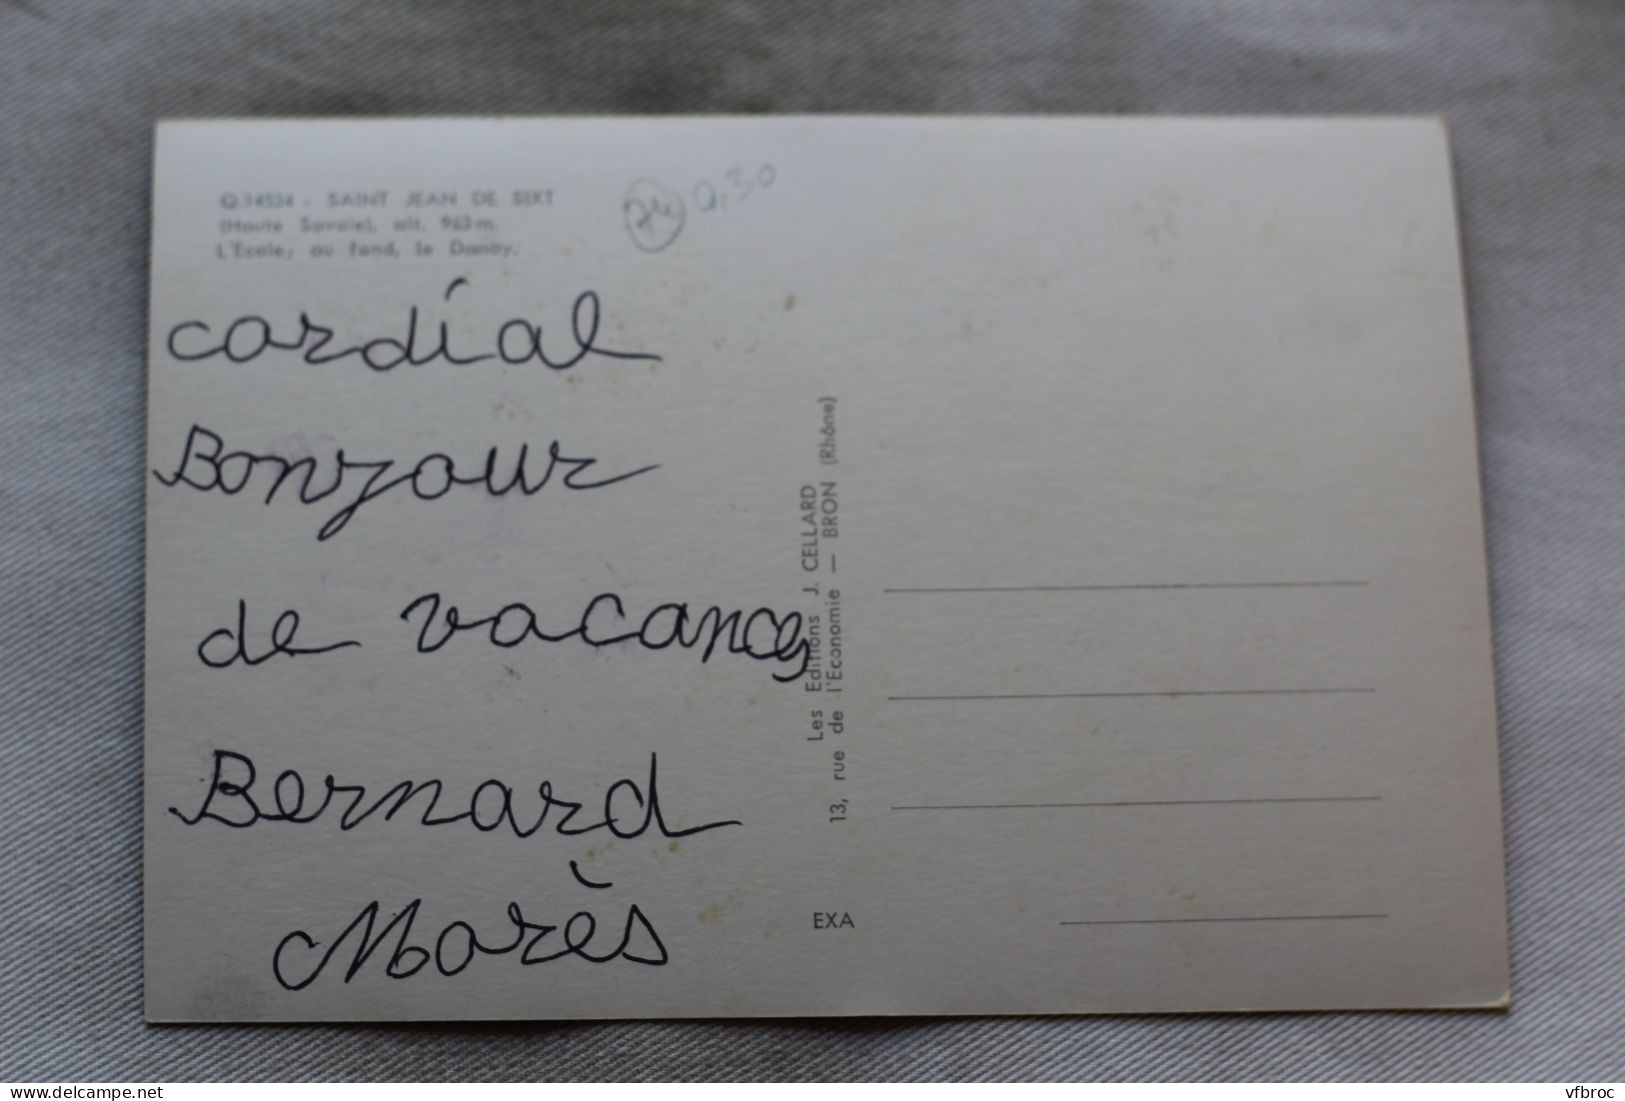 Q.14534 - SAINT JEAN DE SIXT
(Haute Savoie), alt. 963 m.
L'Ecole; au fond, le Danay.
74 0,30
cordial
Bonjour
de vacances
Bernard
Morès
Les Editions J. CELLARD
13, rue de l'Economie — BRON (Rhône)
EXA
www.delcampe.net
vfbroc